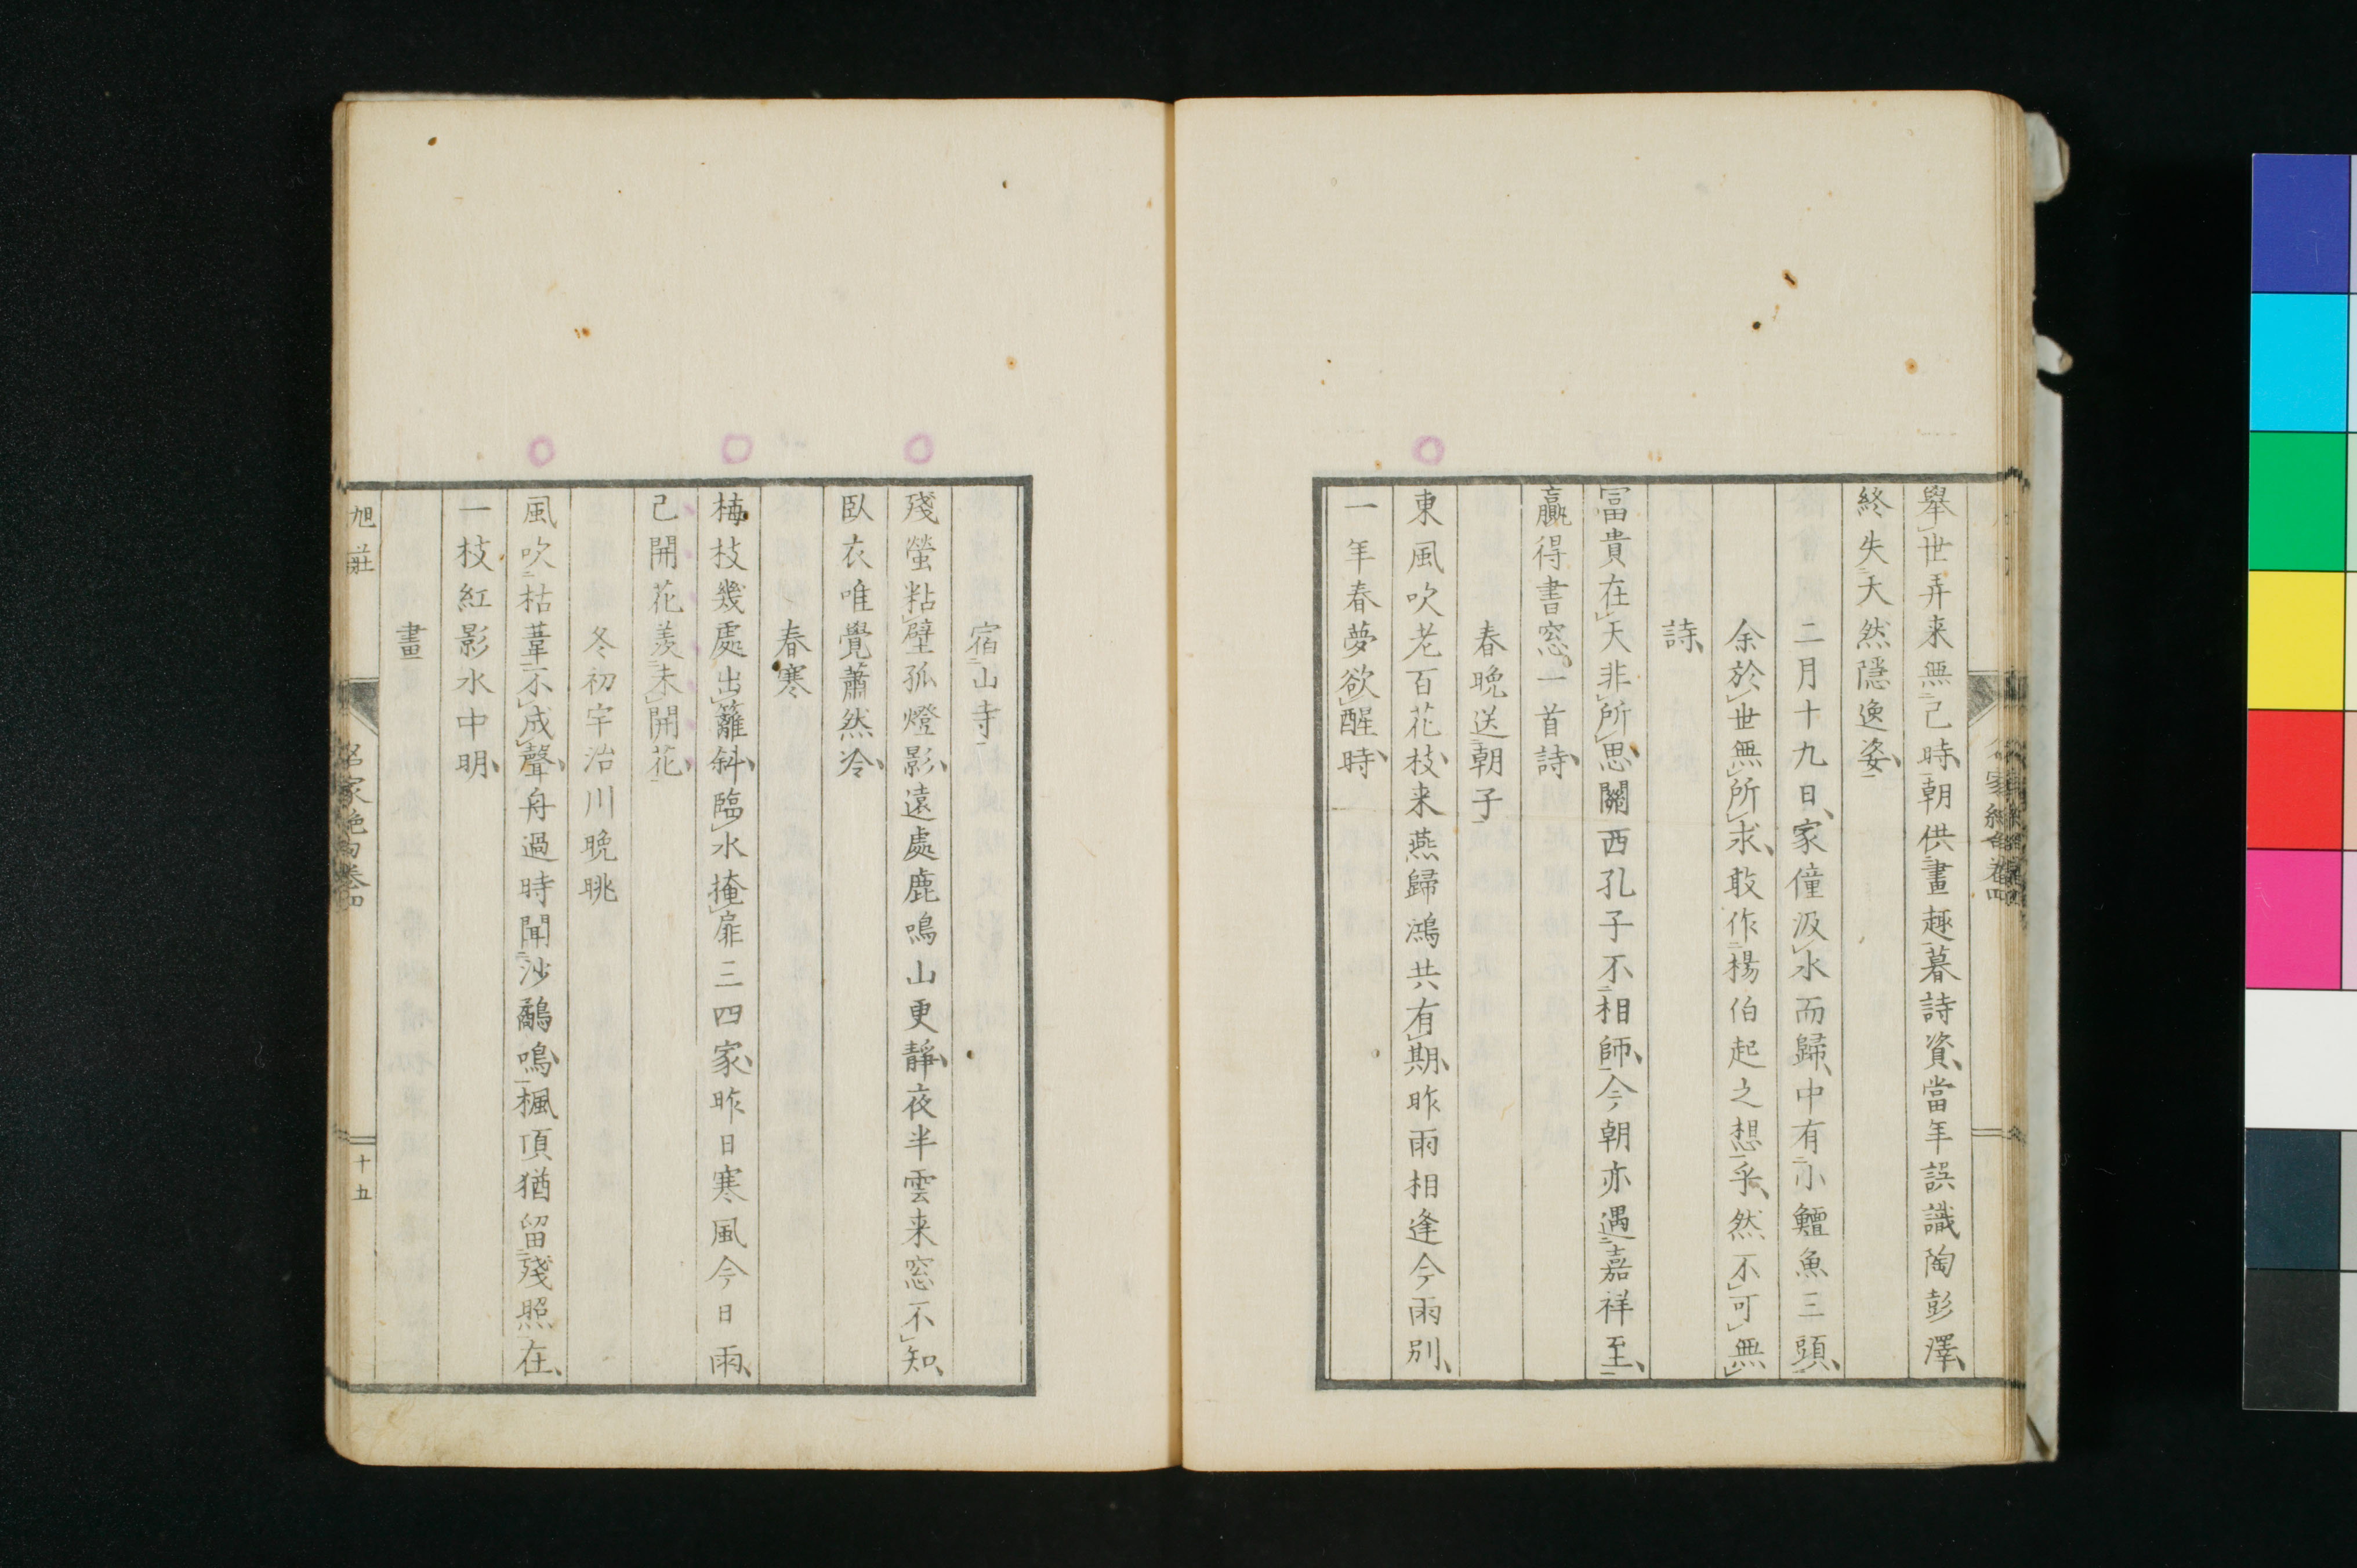 舉世弄来無己時朝供畫趣暮詩資當年誤識陶彭澤
終失天然隱逸姿
二月十九日家僮汲水而歸中有小鱣魚三頭
余於世無所求敢作楊伯起之想乎然不可無
詩
冨貴在天非所思關西孔子不相師今朝亦遇嘉祥至
贏得書窓一首詩
春晩送朝子
東風吹老百花枝来燕歸鴻共有期昨雨相逢今雨別
一年春夢欲醒時
宿山寺
殘螢粘壁孤燈影遠處鹿鳴山更靜夜半雲来窓不知
臥衣唯覺蕭然冷
春寒
梅枝幾處出籬斜臨水掩扉三四家昨日寒風今日雨
己開花羨未開花
冬初宇治川晩眺
風吹枯葦不成聲舟過時聞沙鷸鳴楓頂猶留殘照在
一枝紅影水中明
畫
旭莊
名家絶句卷四
十五